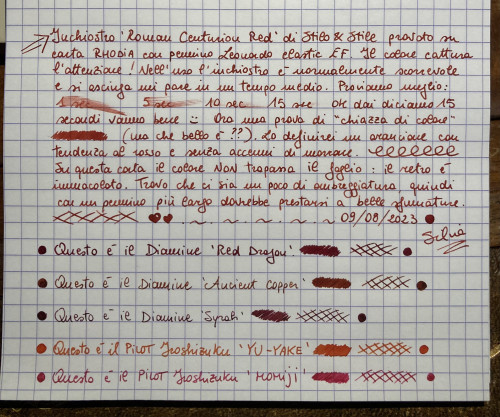 Inchiostro 'Roman Centurion Red' di Stilo & Stile provato su
carta RHODIA con pennino Leonardo elastic EF. Il colore cattura
l'attenzione! Nell'uso l'inchiostro è normalmente scorrevole
e si asciuga mi pare in un tempo medio. Proviamo meglio:
1 sec 5 sec 10 sec 15 sec ok dai diciamo 15
secondi vanno bene :) Ora una prova di "chiazza di colore"
(ma che bello è ??). Lo definirei un arancione con
tendenza al rosso e senza accenni di marrone.
Su questa carta il colore NON trapassa il foglio: il retro è
immacolato. Trovo che ci sia un poco di ombreggiatura, quindi
con un pennino più largo dovrebbe prestarsi a belle sfumature.
09/08/2023
Silvia
Questo è il Diamine 'Red Dragon'
Questo è il Diamine 'Ancient Copper'
Questo è il Diamine 'Syrah'
Questo è il PILOT Iroshizuku 'YU-YAKE'
Questo è il PILOT Iroshizuku 'MOMIJI'